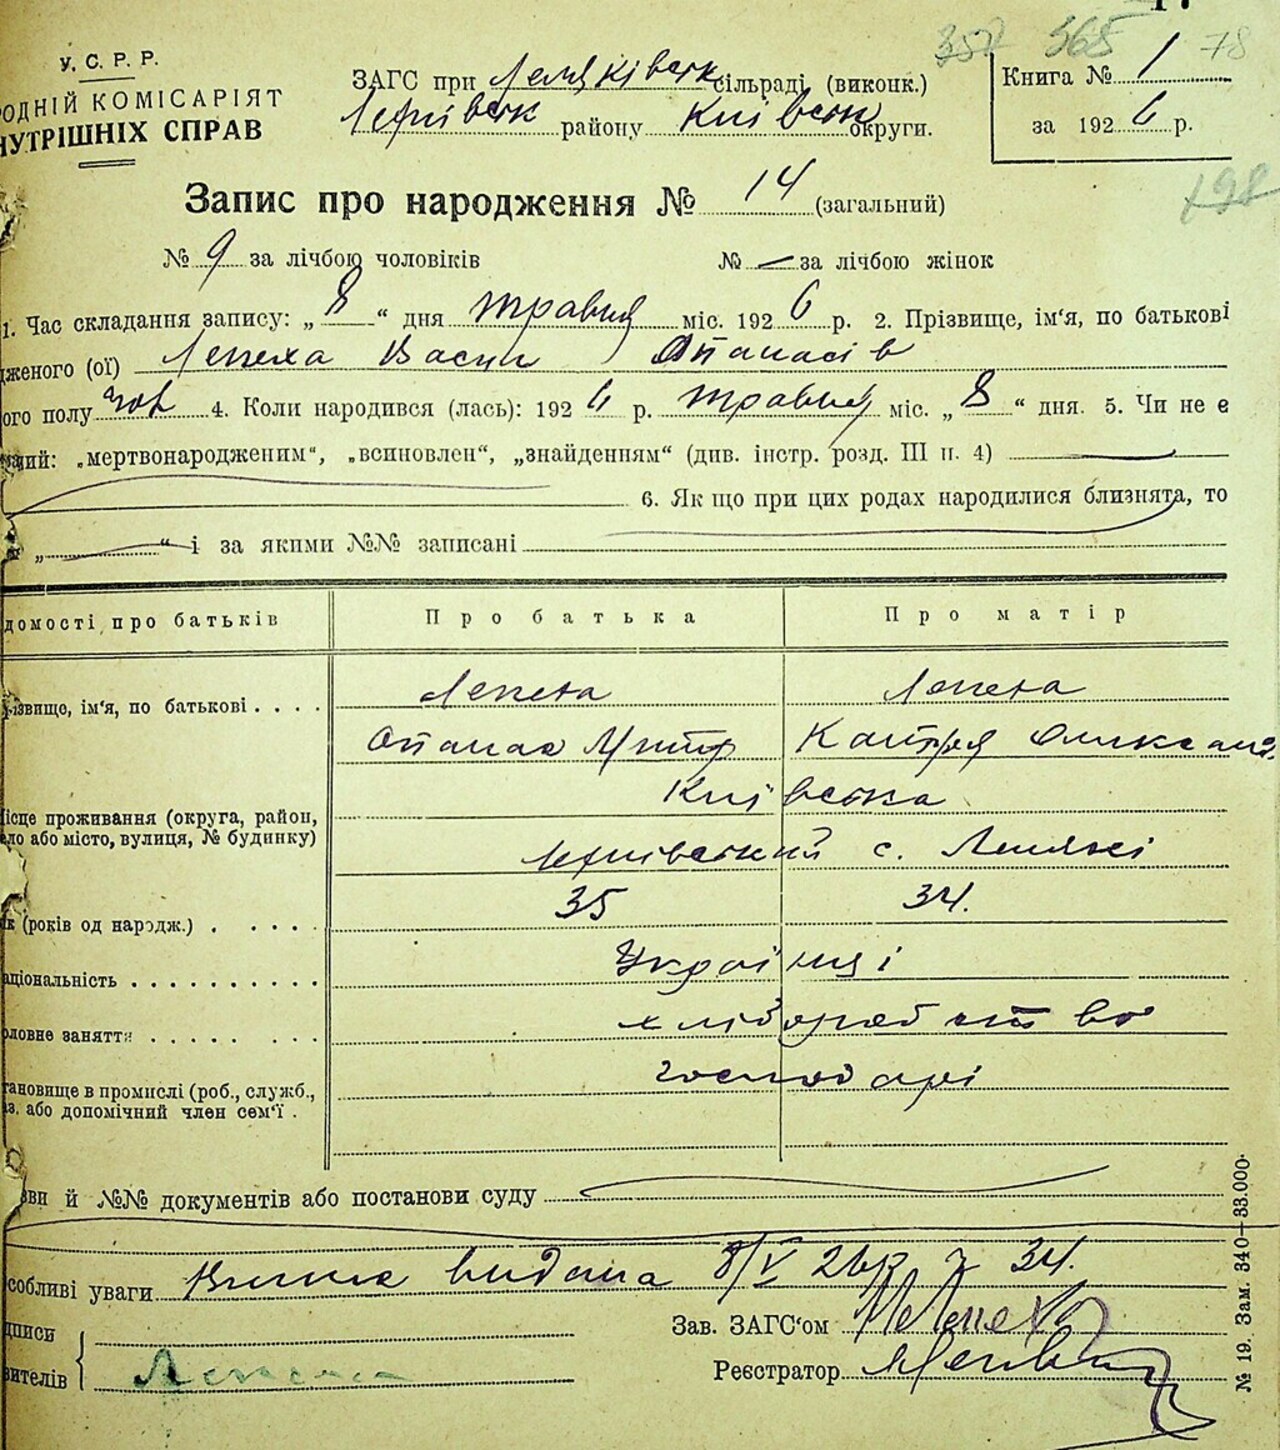 357 565 78
У. С. Р. Р.
РОДНІЙ КОМІСАРІЯТ
НУТРІШНІХ СПРАВ
ЗАГС при Лемяківськ сільраді (виконк.)
району Київськ округи.
Книга № 1
за 1926 р.
198
Запис про народження № 14 (загальний)
№ 9 за лічбою чоловіків № — за лічбою жінок
1. Час складання запису: „8“ дня травня міс. 1926 р. 2. Прізвище, ім‘я, по батькові
дженого (ої) Лепеха Васил Опанасів
ого полу чол 4. Коли народився (лась): 1926 р. травня міс. „8“ дня. 5. Чи не є
„мертвонародженим“, „всиновлен“, „знайденням“ (див. інстр. розд. III п. 4)
6. Як що при цих родах народилися близнята, то
„ “ і за якими №№ записані
домості про батьків Про батька Про матір
різвище, ім‘я, по батькові . . . . Лепеха Лепеха
Опанас Митр Катря Олександ.
Київська
ісце проживання (округа, район,
ело або місто, вулиця, № будинку)
с. Лемякі
ік (років од народж.) . . . . . 35 34.
аціональність . . . . . . . . . . Українці
оловне заняття . . . . . . . . хліборобство
тановище в промислі (роб., служб., господарі
з. або допомічний член сем‘ї .
ви й №№ документів або постанови суду
собливі уваги Виписка видана 8/V 26р ч 34.
дписи
вителів Лепеха
Зав. ЗАГС‘ом
Реєстратор
№ 19. Зам. 340—33.000.